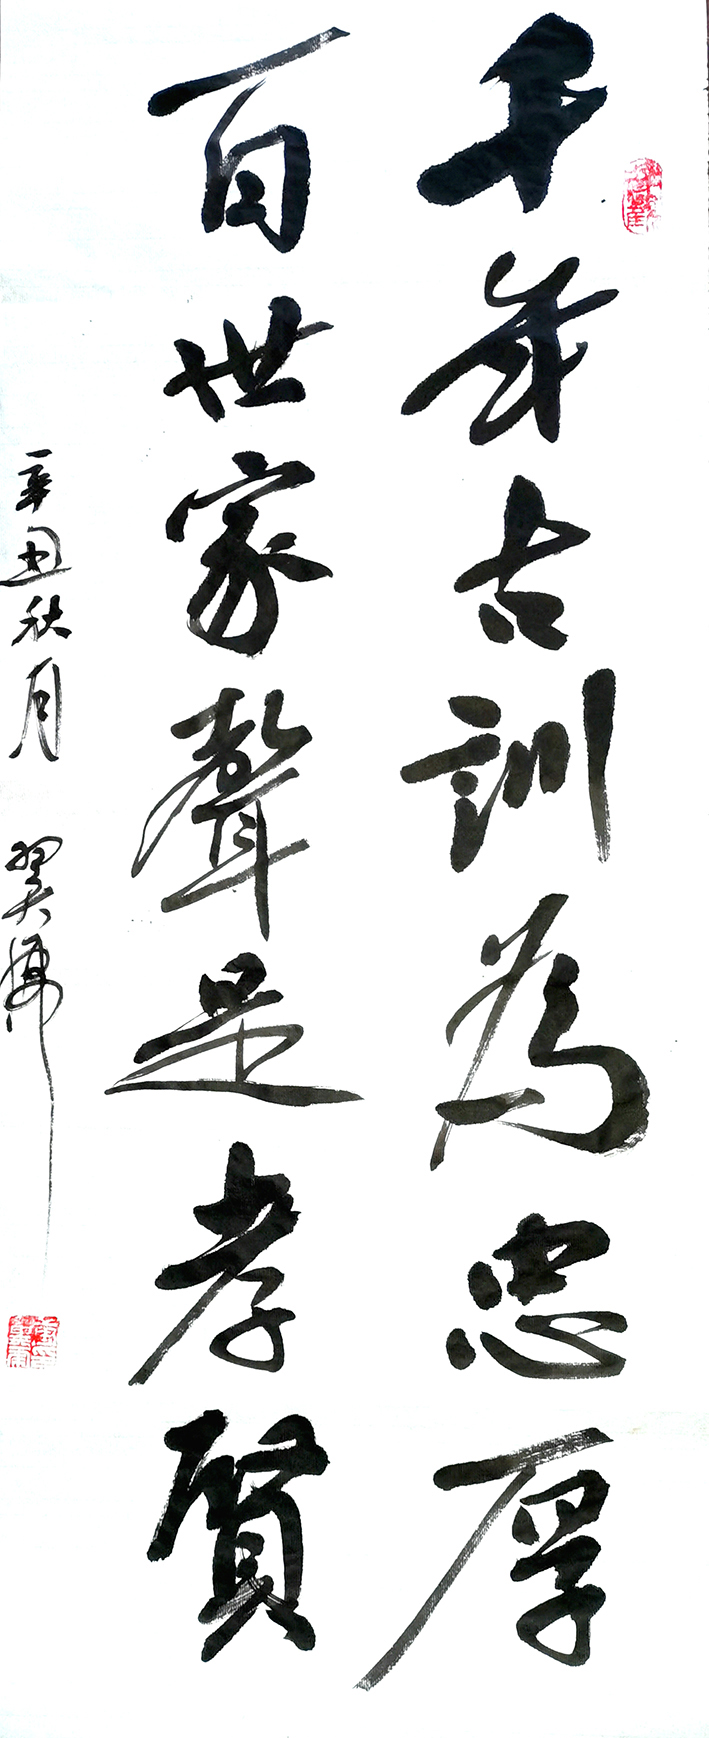 千年古訓為忠厚
百世家聲是孝賢
辛丑秋月 翼